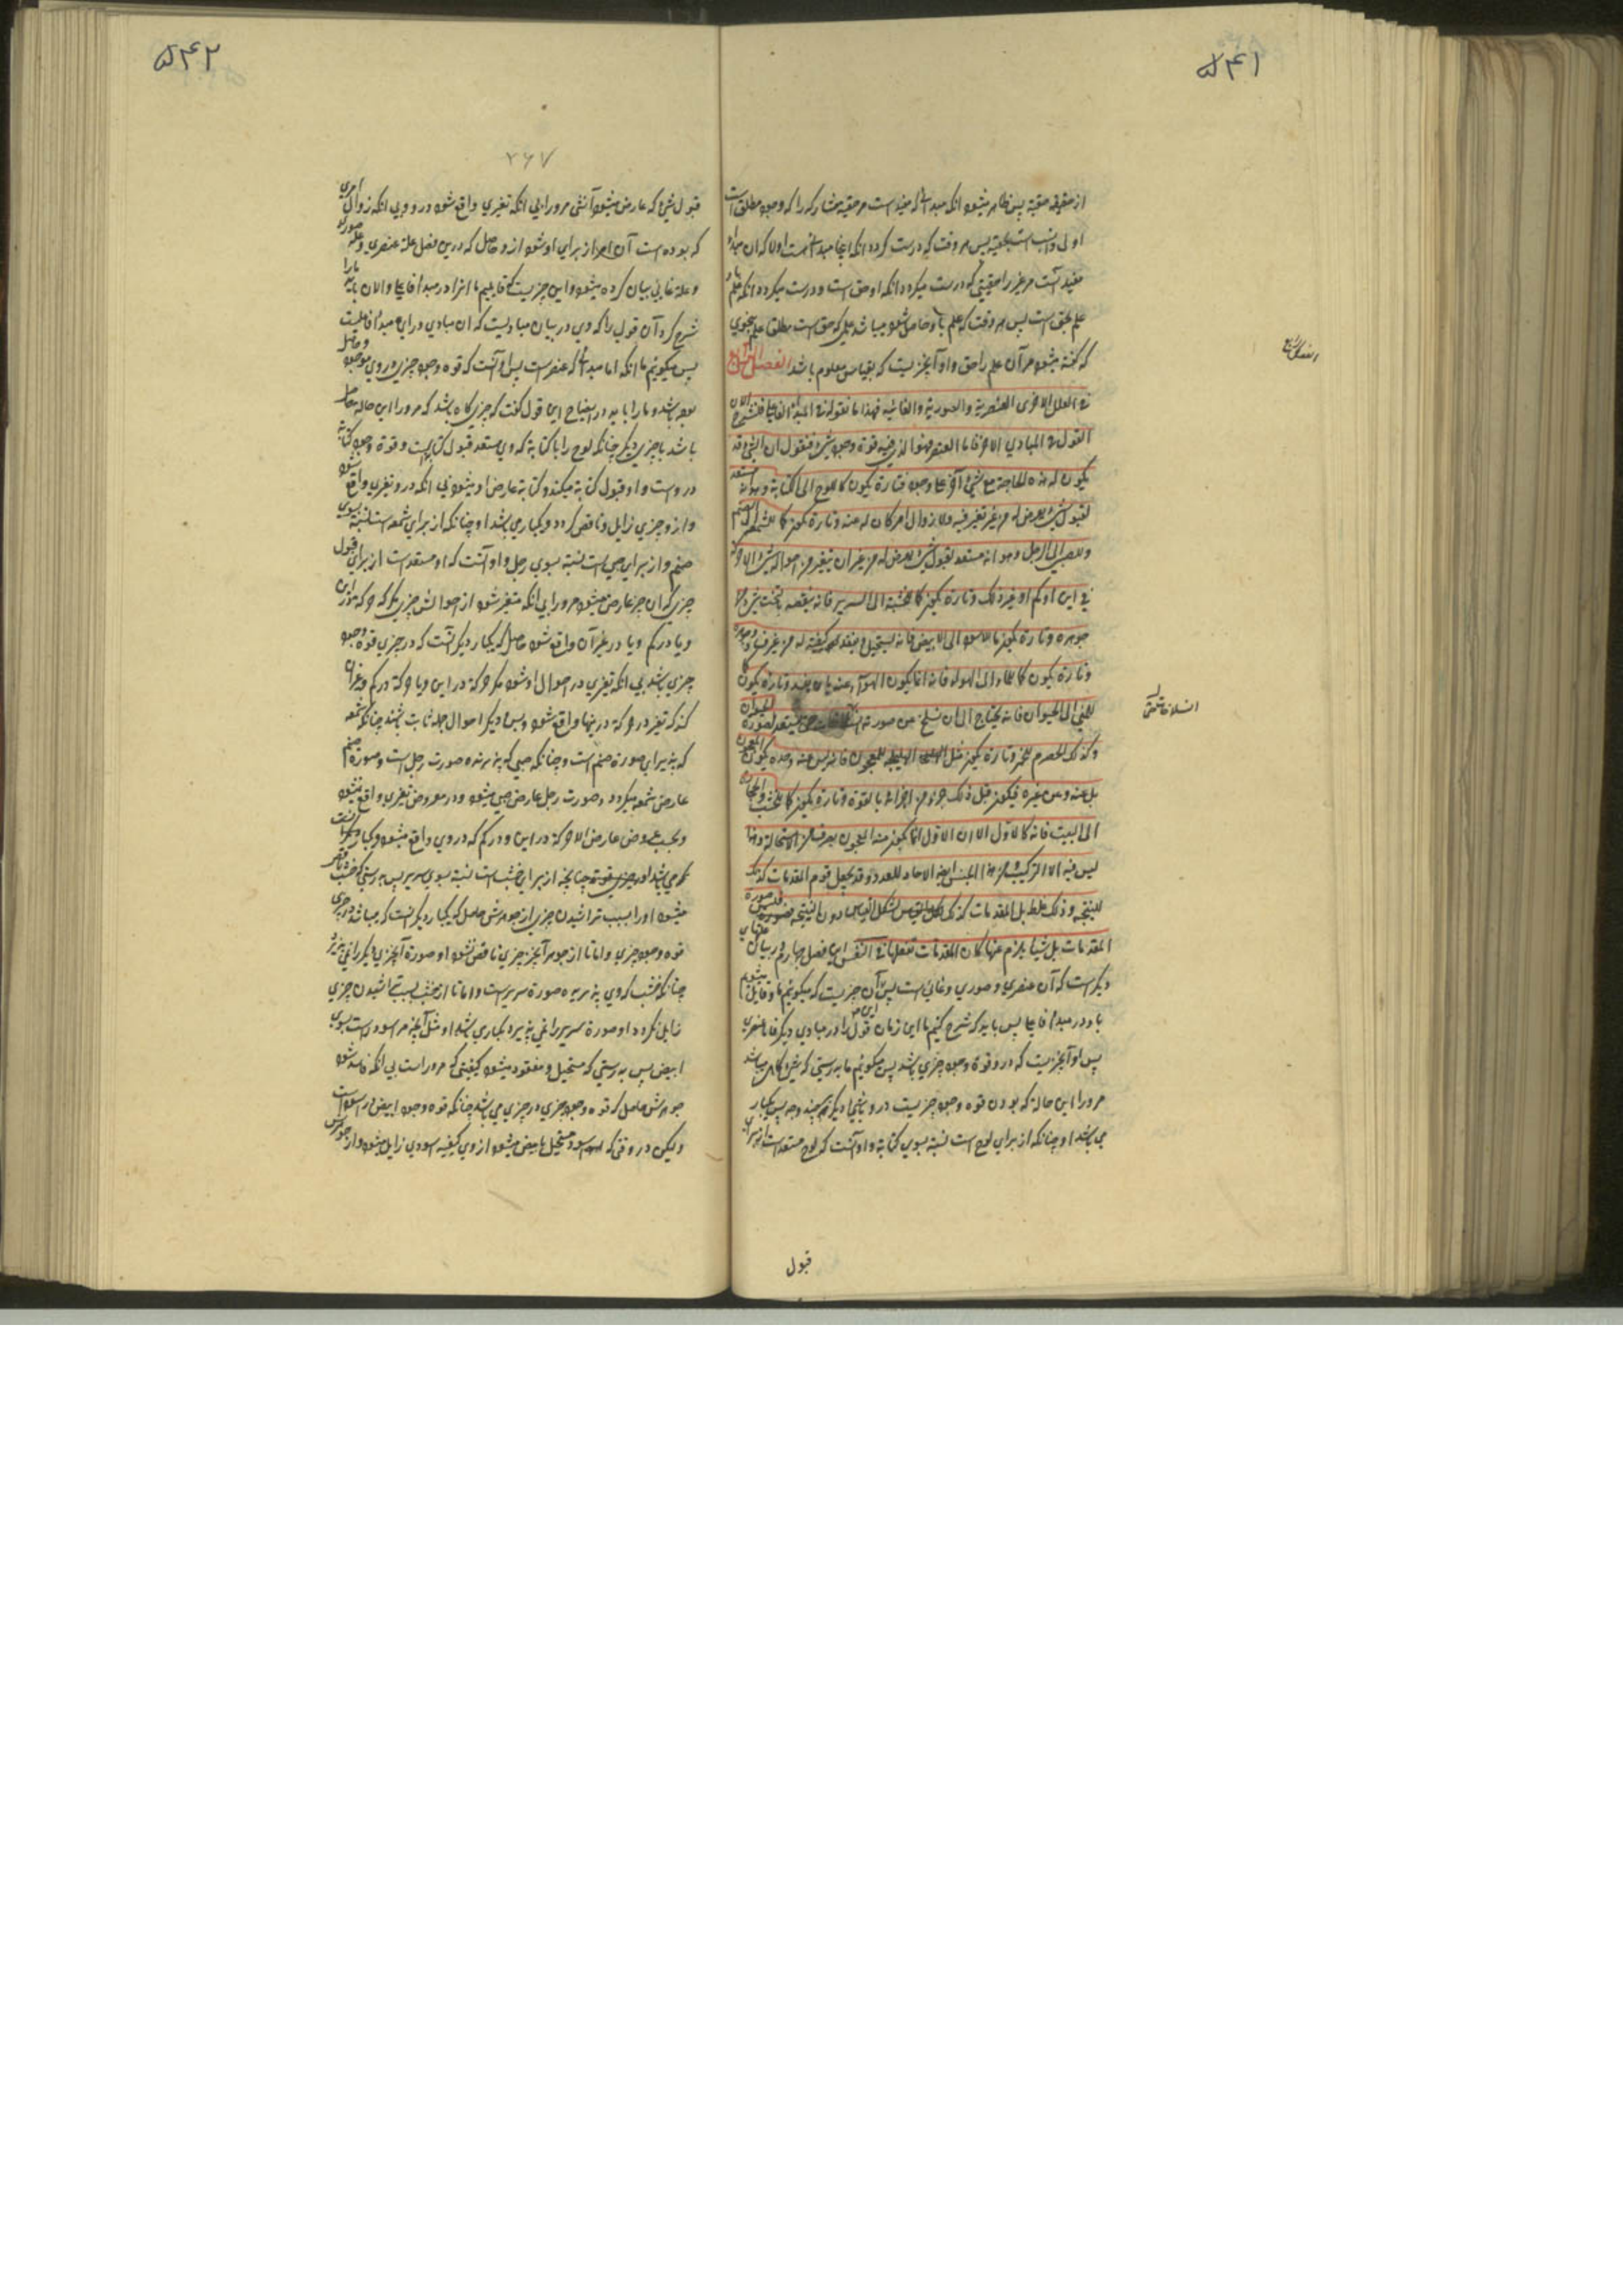 ۵۴۱
از حقیقه حقیة پس ظاهر میشود انکه مبدائی که مفید است مر حقیة مشارک را که وجود مطلق است
اولی و انسب است بحقیة پس هر وقت که درست کردد انکه اینجا مبدائیست اولا که ان مبداء
مفید است مر غیر را حقیتی که درست میکردد انکه او حق است و درست میکردد انکه علم باو
علم بحق است پس هر وقت که علم باو حاصل شود میباشد علمی که حق است مطلقا علم بنحوی
که گفته میشود مر آن علم را حق و او آنچیزیست که بقیاس معلوم باشد الفصل الرابع
الفصل الرابع
فی العلل الاخری العنصریة والصوریة والغائیة فهذا ما نقوله فی المبدأ الفاعلی فلنشرح الان
القول فی المبادی الاخر فاما العنصر فهو الذی فیه قوة وجود شیء فنقول ان الشیء قد
یکون له هذه الحاجة مع شیء آخر علی وجوه فتارة یکون کما للوح الی الکتابة وهو انه مستعد
لقبول شیء یعرض له من غیر تغیر فیه ولا زوال امر کان له عنه وتارة یکون کما للشمعة الی الصنم
وللصبی الی الرجل وهو انه مستعد لقبول شیء یعرض له من غیر ان یتغیر من احواله شیء الا حرکة
فی این او کم او غیر ذلک وتارة یکون کما للخشبة الی السریر فانه ینقصه بالنحت شیء من
جوهره وتارة یکون ما للاسود الی الابیض فانه یستحیل و یفقد کیفیة له من غیر فساد جوهره
وتارة یکون کما للماء الی الهواء فانه انما یکون الهواء عنه بان یفسد وتارة یکون کما
للمنی الی الحیوان فانه یحتاج الی ان ینسلخ عن صورته انسلاخات حتی یستعد لصورة الحیوان
انسلاخات حتی
وکذلک الحصرم للخمر وتارة یکون مثل الهلیلجة للمعجون فانه لیس عنه وحده یکون المعجون
بل عنه وعن غیره فیکون قبل ذلک جزء من اجزائه بالقوة وتارة یکون کما للخشب والحجارة
الی البیت فانه کالاول الا ان الاول انما یکون منه المعجون بضرب من الاستحالة وهذا
لیس فیه الا الترکیب ومن هذا الجنس ایضا الاحاد للعدد وقد یجعل قوم المقدمات کذلک
للنتیجة وذلک غلط بل المقدمات کذلک لشکل القیاس دون النتیجة فلیس صورة
المقدمات بل شیئا یلزم عنها کان المقدمات تفعلها فی النفس این فصل چهارم در بیان علتهای
دیکر است که آن عنصری و صوری و غائی است پس آن چیزیست که میکوئیم ما و قایل میشویم
باو در مبداء فاعلی پس باید که شرح کنیم ما این زمان قول را در مبادی دیکر فاما عنصری
پس او آنچیزیست که در و قوة وجود چیزی باشد پس میکوئیم ما بدرستی که شیء کاه میباشد
مر ورا این حاله که بودن قوه وجود چیزیست در و باشیء دیکر بچند وجه پس یکبار
می باشد او چنانکه از برای لوح است نسبة بسوی کتابة و او آنست که لوح مستعد است از برای
قبول
۵۴۲
۲۶۷
قبول شیء که عارض میشود آنشی مر ورا بی انکه تغیری واقع شود در و و بی انکه زوال امری
که بوده است آن امر از برای او شود از و حاصل که درین فصل علة عنصری و علة صوری
و علة غائی بیان کرده میشود و این چیزیست که قایلیم ما انرا در مبداء فاعلی و الان باید ما را
شرح کرد آن قول را که وی در بیان مبادیست که ان مبادی ورای مبداء فاعلیست
پس میکوئیم ما انکه اما مبدائی که عنصر است پس او آنست که قوه وجود چیزی در وی موجود و حاصل
بوده باشد و ما را باید در ایضاح این قول کفت که چیزی کاه باشد که مر ورا این حاله حاصل
باشد با چیزی دیکر چنانکه لوح را با کتابة که وی مستعد قبول کتابتست و قوة وجود کتابة
در وست و او قبول کتابة میکند و کتابة عارض او میشود بی انکه در و تغیری واقع شود
و از و چیزی زایل و ناقص کردد و یکبار می باشد او چنانکه از برای شمعه است نسبة بسوی
صنم و از برای صبی است نسبة بسوی رجل و او آنست که او مستعد است از برای قبول
چیزی که ان چیز عارض میشود مر ورا بی انکه متغیر شود از احوالش چیزی مکر که حرکة در این
و یا در کم و یا در غیر آن واقع شود حاصل که یکبار دیکر آنست که در چیزی قوه وجود
چیزی باشد بی انکه تغیری در احوال او شود مکر حرکة در این و یا حرکة در کم و غیر ان
کند که تغیر در حرکة درینها واقع شود و بس و دیکر احوال بجمله ثابت باشند چنانکه شمعه
که پذیرای صورة صنم است و چنانکه صبی که پذیرنده صورت رجل است و صورة صنم
عارض شمعه میکردد و صورت رجل عارض صبی میشود و در معروض تغیری واقع نمیشود
و بحسب عروض عارض الا حرکة در این و در کم که در وی واقع میشود و یکبار دیکر انست
که می باشد او چنانچه از برای خشب است نسبة بسوی سریر پس بدرستی که خشب ناقص
میشود او را بسبب تراشیدن چیزی از جوهرش حاصل که یکبار دیکر انست که میباشد در چیزی
قوه وجود چیزی و اما تا از جوهر آنچیز چیزی ناقص نشود او صورة آنچیزی دیکر را نمی پذیرد
چنانکه خشب که وی پذیرنده صورة سریر است و اما تا از خشب بسبب تراشیدن چیزی
زایل نکردد او صورة سریر را نمی پذیرد و یکبار می باشد او مثل آنچه مر اسود راست بسوی
ابیض پس بدرستی که مستحیل و مفقود میشود کیفیتی که مر ورا است بی انکه فاسد شود
جوهرش حاصل که قوه وجود چیزی در چیزی می باشد چنانکه قوه وجود ابیض در اسود است
و لیکن در وقتی که اسود مستحیل بابیض میشود از وی کیفیه اسودی زایل میشود و از جوهرش